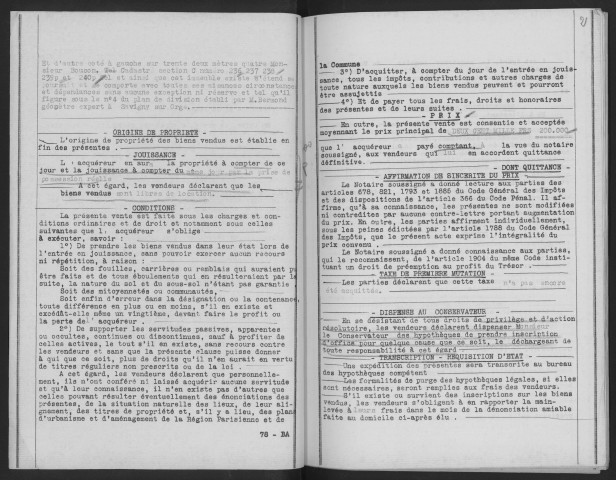 Et d'autre coté à gauche sur trente deux mètres quatre Mon-
sieur Cadastr section C numéro 236 237 238
239 et 240 et ainsi que cet immeuble existe s'étend se
poursuit et se comporte avec toutes ses aisances circonstances
et dépendances sans aucune exception ni réserve et tel qu'il
figure sous le n°4 du plan de division établi par M.
géomètre expert à Savigny sur Orge.
- ORIGINE DE PROPRIETE -
L'origine de propriété des biens vendus est établie en
fin des présentes .
- JOUISSANCE -
L ' acquéreur en aura la propriété à compter de ce
jour et la jouissance à compter du même jour par la prise de
possession réelle
A cet égard, les vendeurs déclarent que les
biens vendus sont libres de location.
- CONDITIONS -
La présente vente est faite sous les charges et con-
ditions ordinaires de droit et notamment sous celles
suivantes que l' acquéreur s'oblige
à exécuter, savoir :
1°) De prendre les biens vendus dans leur état lors de
l'entrée en jouissance, sans pouvoir exercer aucun recours
ni répétition, à raison :
Soit des fouilles, carrières ou remblais qui auraient pu
être faits et de tous éboulements qui en résulteraient par la
suite, la nature du sol et du sous-sol n'étant pas garantie
Soit des mitoyennetés ou communautés,
Soit enfin d'erreur dans la désignation ou la contenance
toute différence en plus ou en moins, s'il en existe et
excédât-elle même un vingtième, devant faire le profit ou
la perte de l' acquéreur .
2°) De supporter les servitudes passives, apparentes
ou occultes, continues ou discontinues, sauf à profiter de
celles actives, le tout s'il en existe, sans recours contre
les vendeurs et sans que la présente clause puisse donner
à qui que ce soit, plus de droits qu'il n'en aurait en vertu
de titres réguliers non prescrits ou de la loi .
A cet égard, les vendeurs déclarent que personnelle-
ment, ils n'ont conféré ni laissé acquérir aucune servitude
et qu'à leur connaissance, il n'en existe pas d'autres que
celles pouvant résulter éventuellement des énonciations des
présentes, de la situation naturelle des lieux, de leur ali-
gnement, des titres de propriété et, s'il y a lieu, des plans
d'urbanisme et d'aménagement de la Région Parisienne et de
78 - BA
la Commune
3°) D'acquitter, à compter du jour de l'entrée en jouis-
sance, tous les impôts, contributions et autres charges de
toute nature auxquels les biens vendus peuvent et pourront
être assujettis
4°) Et de payer tous les frais, droits et honoraires
des présentes et de leurs suites .
- PRIX -
En outre, la présente vente est consentie et acceptée
moyennant le prix principal de DEUX CENT MILLE FRS 200.000
que l' acquéreur a payé comptant, à la vue du notaire
soussigné, aux vendeurs qui lui en accordent quittance
définitive.
- DONT QUITTANCE -
- AFFIRMATION DE SINCERITE DU PRIX -
Le Notaire soussigné a donné lecture aux parties des
articles 678, 821, 1793 et 1885 du Code Général des Impôts
et des dispositions de l'article 366 du Code Pénal. Il af-
firme, qu'à sa connaissance, les présentes ne sont modifiées
ni contredites par aucune contre-lettre portant augmentation
du prix. En outre, les parties affirment individuellement,
sous les peines édictées par l'article 1788 du Code Général
des Impôts, que le présent acte exprime l'intégralité du
prix convenu .
Le Notaire soussigné a donné connaissance aux parties,
qui le reconnaissent, de l'article 1904 du même Code insti-
tuant un droit de préemption au profit du Trésor .
- TAXE DE PREMIERE MUTATION -
Les parties déclarent que cette taxe n'a pas encore
été acquittée.
- DISPENSE AU CONSERVATEUR -
En se désistant de tous droits de privilège et d'action
résolutoire, les vendeurs déclarent dispenser Monsieur
le Conservateur des hypothèques de prendre inscription
d'office pour quelque cause que ce soit, le déchargeant de
toute responsabilité à cet égard
- TRANSCRIPTION - REQUISITION D'ETAT -
Une expédition des présentes sera transcrite au bureau
des hypothèques compétent
Les formalités de purge des hypothèques légales, si elles
sont nécessaires, seront remplies aux frais des vendeurs.
S'il existe ou survient des inscriptions sur les biens
vendus, les vendeurs s'obligent à en rapporter la main-
levée à leurs frais dans le mois de la dénonciation amiable
faite au domicile ci-après élu .